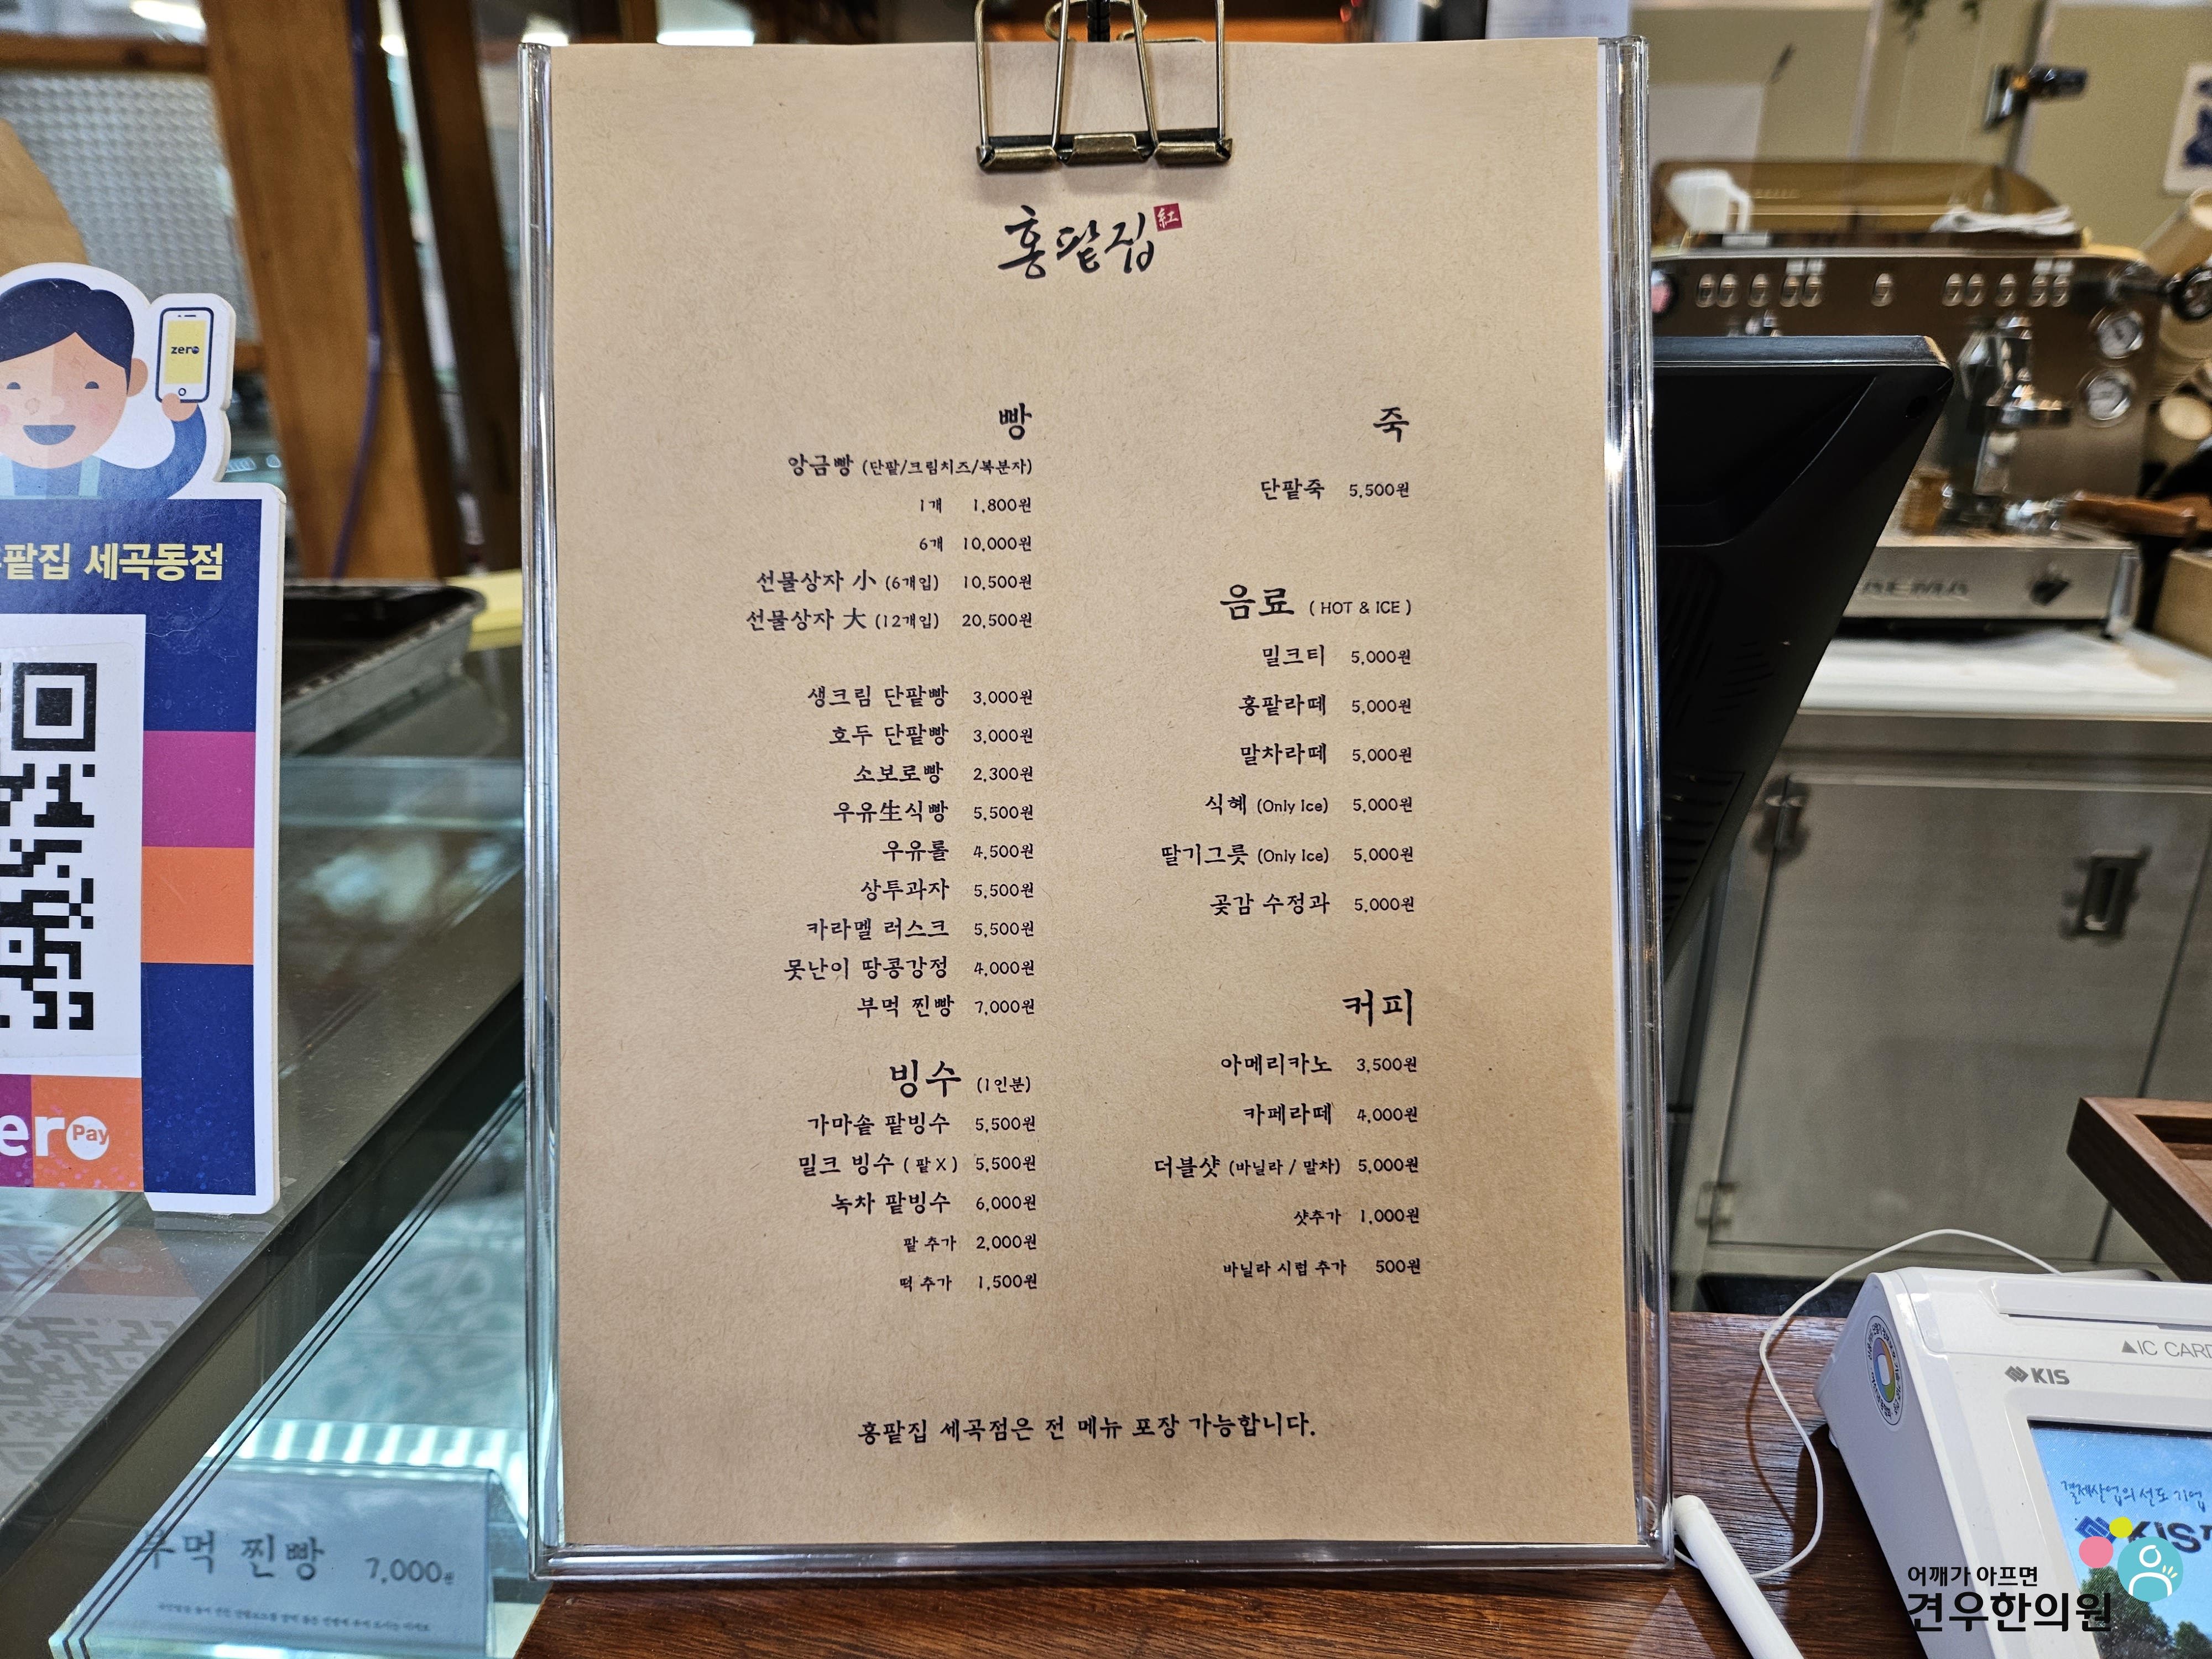 홍팥집 紅
빵
앙금빵 (단팥/크림치즈/복분자)
1개 1,800원
6개 10,000원
선물상자 小 (6개입) 10,500원
선물상자 大 (12개입) 20,500원
생크림 단팥빵 3,000원
호두 단팥빵 3,000원
소보로빵 2,300원
우유生식빵 5,500원
우유롤 4,500원
상투과자 5,500원
카라멜 러스크 5,500원
못난이 땅콩강정 4,000원
부먹 찐빵 7,000원
빙수 (1인분)
가마솥 팥빙수 5,500원
밀크 빙수 ( 팥X ) 5,500원
녹차 팥빙수 6,000원
팥 추가 2,000원
떡 추가 1,500원
죽
단팥죽 5,500원
음료 ( HOT & ICE )
밀크티 5,000원
홍팥라떼 5,000원
말차라떼 5,000원
식혜 (Only Ice) 5,000원
딸기그릇 (Only Ice) 5,000원
곶감 수정과 5,000원
커피
아메리카노 3,500원
카페라떼 4,000원
더블샷 (바닐라 / 말차) 5,000원
샷추가 1,000원
바닐라 시럽 추가 500원
홍팥집 세곡점은 전 메뉴 포장 가능합니다.
zero
팥집 세곡동점
Pay
부먹 찐빵 7,000원
▲IC CARD
KIS
결제산업의 선도 기업
KIS
어깨가 아프면
견우한의원